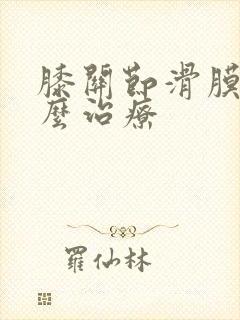 膝關節滑膜
麼治療
羅仙林